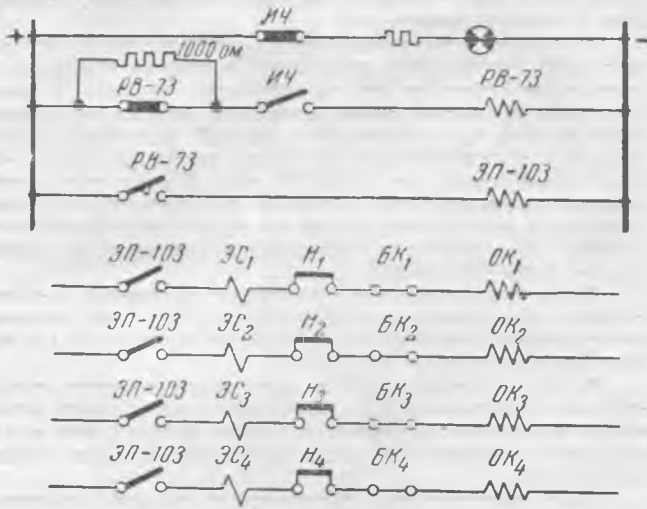 ИЧ
+ −
1000 ом
РВ-73 ИЧ РВ-73
РВ-73 ЭП-103
ЭП-103 ЭС₁ Н₁ БК₁ ОК₁
ЭП-103 ЭС₂ Н₂ БК₂ ОК₂
ЭП-103 ЭС₃ Н₃ БК₃ ОК₃
ЭП-103 ЭС₄ Н₄ БК₄ ОК₄